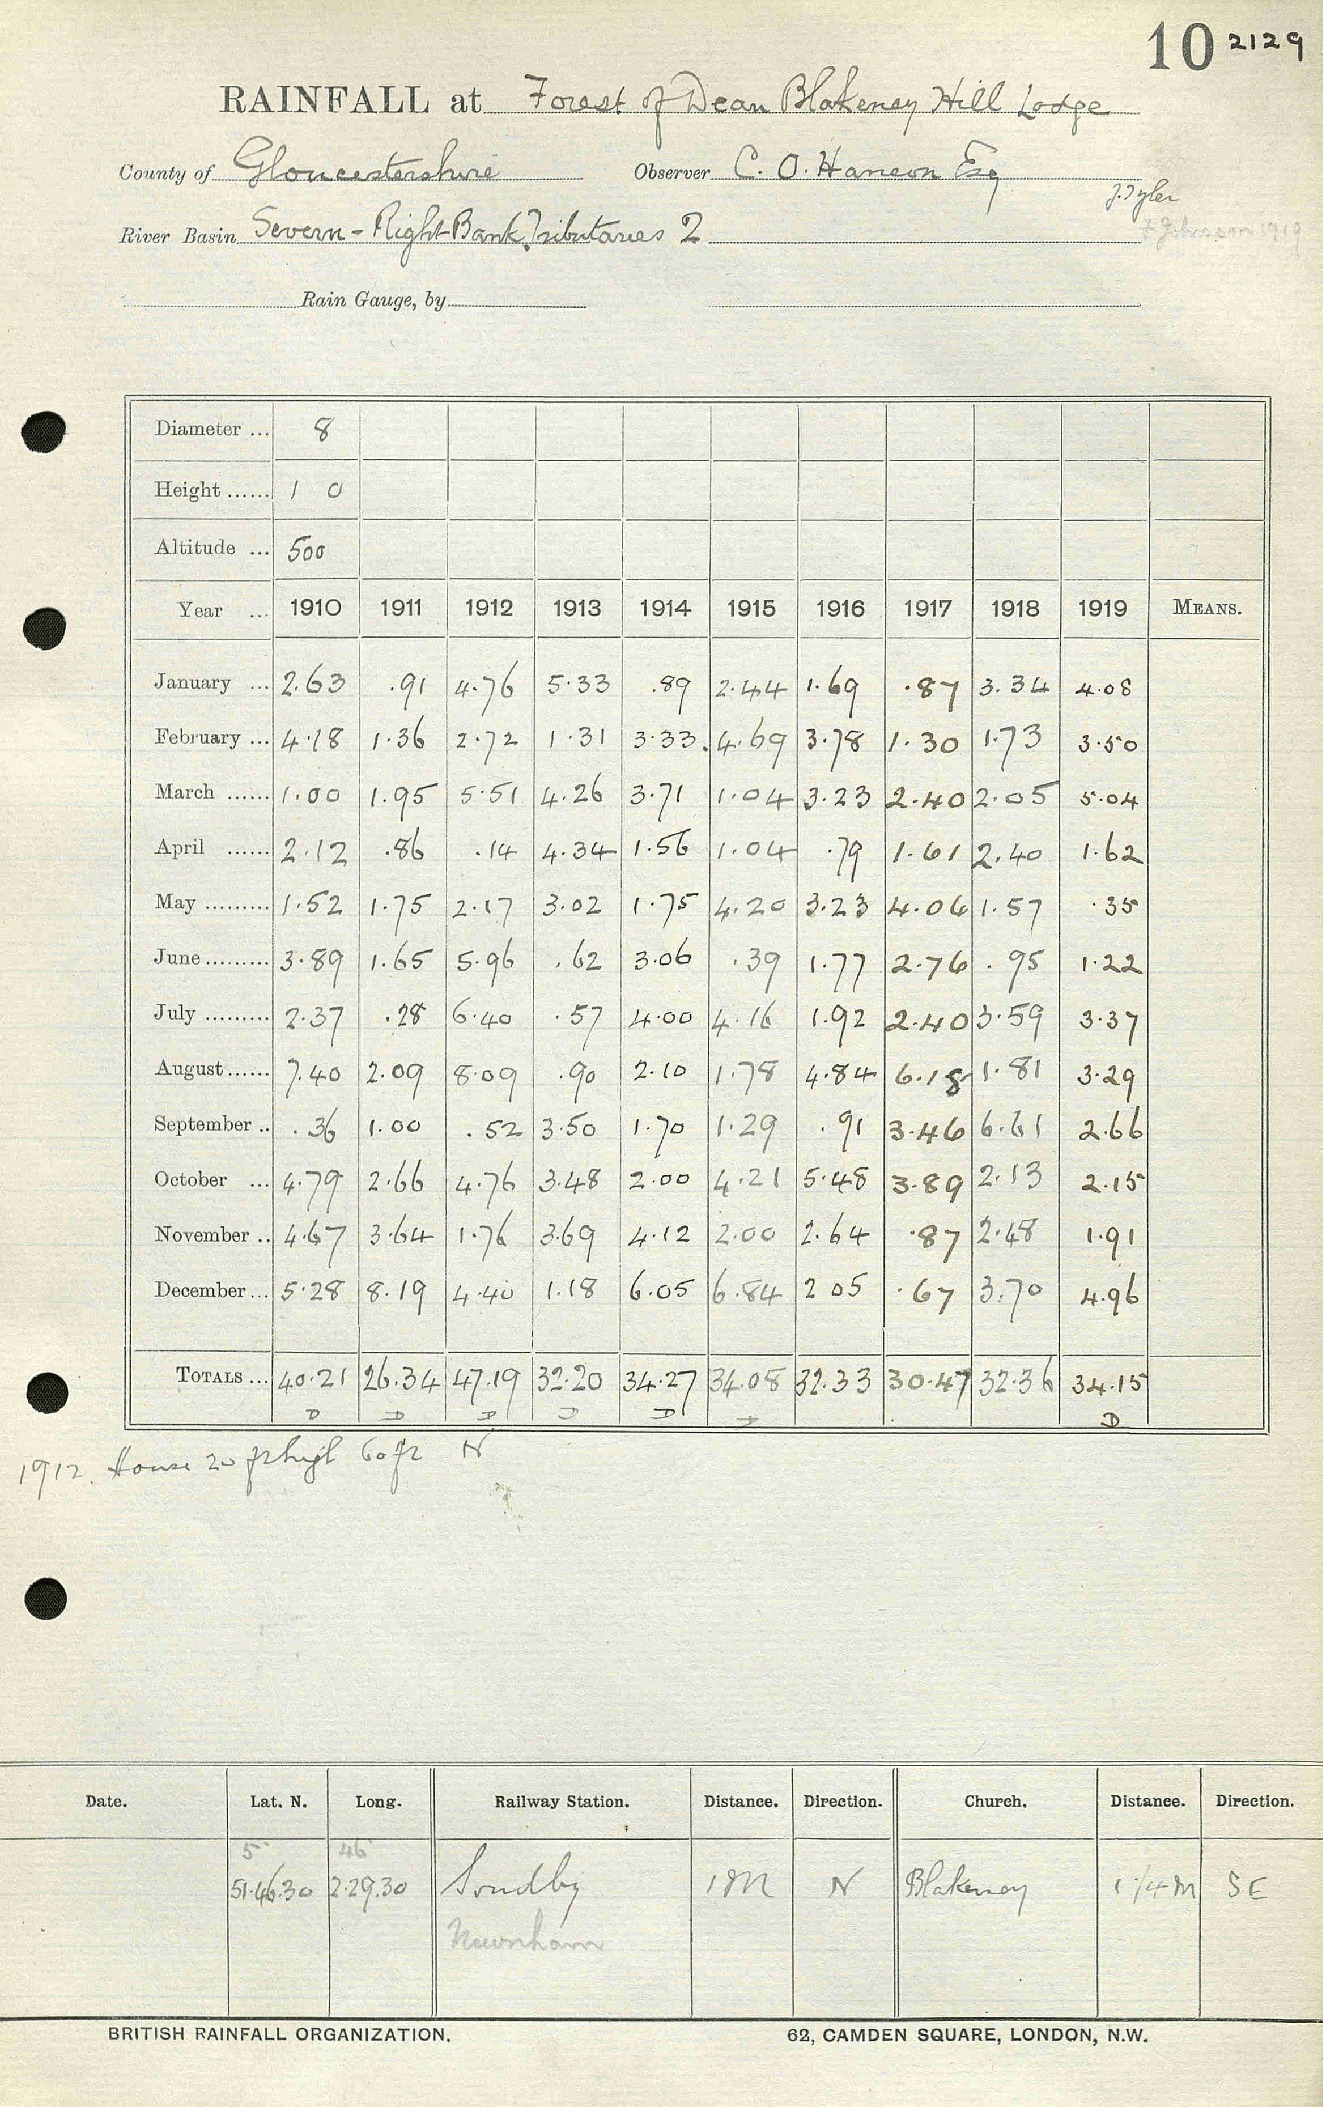 10 2129
RAINFALL at Forest of Dean Blakeney Hill Lodge
County of Gloucestershire Observer C. O. Hanson Esq
J. Tyler
River Basin Severn - Right Bank Tributaries 2 F Johnson 1919
Rain Gauge, by
Diameter ... 8
Height ...... 1 0
Altitude ... 500
Year ... 1910 1911 1912 1913 1914 1915 1916 1917 1918 1919 MEANS.
January ... 2.63 .91 4.76 5.33 .89 2.44 1.69 .87 3.34 4.08
February ... 4.18 1.36 2.72 1.31 3.33 4.69 3.78 1.30 1.73 3.50
March ...... 1.00 1.95 5.51 4.26 3.71 1.04 3.23 2.40 2.05 5.04
April ...... 2.12 .86 .14 4.34 1.56 1.04 .79 1.61 2.40 1.62
May ......... 1.52 1.75 2.17 3.02 1.75 4.20 3.23 4.06 1.57 .35
June ......... 3.89 1.65 5.96 .62 3.06 .39 1.77 2.76 .95 1.22
July ......... 2.37 .28 6.40 .57 4.00 4.16 1.92 2.40 3.59 3.37
August ...... 7.40 2.09 8.09 .90 2.10 1.78 4.84 6.18 1.81 3.29
September .. .36 1.00 .52 3.50 1.70 1.29 .91 3.46 6.61 2.66
October ... 4.79 2.66 4.76 3.48 2.00 4.21 5.48 3.89 2.13 2.15
November .. 4.67 3.64 1.76 3.69 4.12 2.00 2.64 .87 2.48 1.91
December ... 5.28 8.19 4.40 1.18 6.05 6.84 2 05 .67 3.70 4.96
TOTALS ... 40.21 26.34 47.19 32.20 34.27 34.08 32.33 30.47 32.36 34.15
D D D D D D D
1912. House 20 ft high 60 ft N
Date. Lat. N. Long. Railway Station. Distance. Direction. Church. Distance. Direction.
5 46
51.46.30 2.29.30 1M N Blakeney 1 1/4 M SE
Newnham
BRITISH RAINFALL ORGANIZATION. 62, CAMDEN SQUARE, LONDON, N.W.